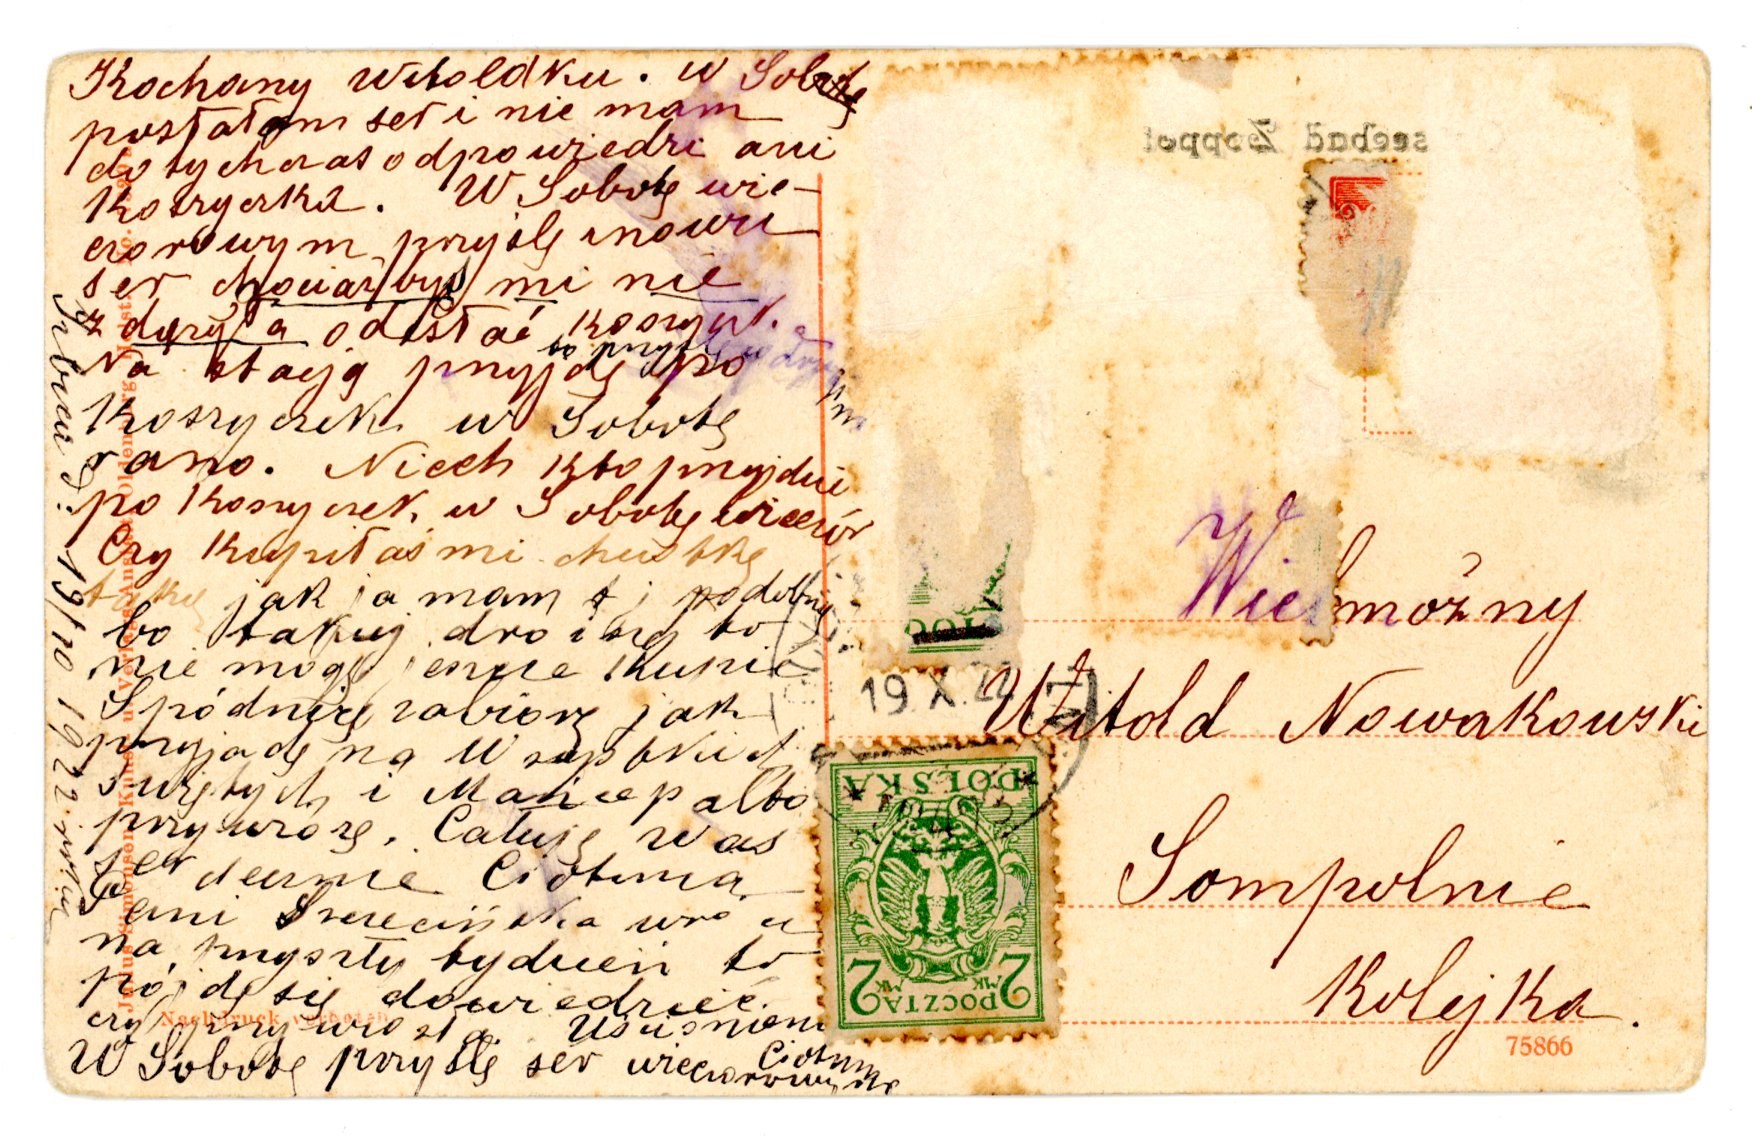 Kochany Witoldku. W Sobotę
posłałam ser i nie mam
dotychczas odpowiedzi ani
koszyczka. W Sobotę wie-
czorowym przyślę znowu
ser chociażbyś mi nie
zdążyła odesłać koszyk.
to przyj
Na stację przyjdę po
koszyczek w Sobotę
rano. Niech kto przyjdzie
po koszyczek w Sobotę wieczór
Czy kupiłaś mi chustkę
taką jak ja mam t j podobną
bo takiej drogiej to
nie mogę jeszcze kupić
Spódnicę zabiorę jak
przyjadę na Wszystkich
Świętych i Mańce palto
przywiozę. Całuję was
serdecznie Ciotunia
Pani Szczecińska wróci
na przyszły tydzień to
pójdę się dowiedzieć
czy przywiozła. Uściśnień
Ciotun
W Sobotę przyślę ser wieczorowym
19/10 1922 roku
seebad Zoppot
100
19.X.22
Wielmożny
Witold Nowakowski
Sompolnie
Kolejka.
POLSKA
2 2
MK MK
POCZTA
Nachdruck verboten
75866